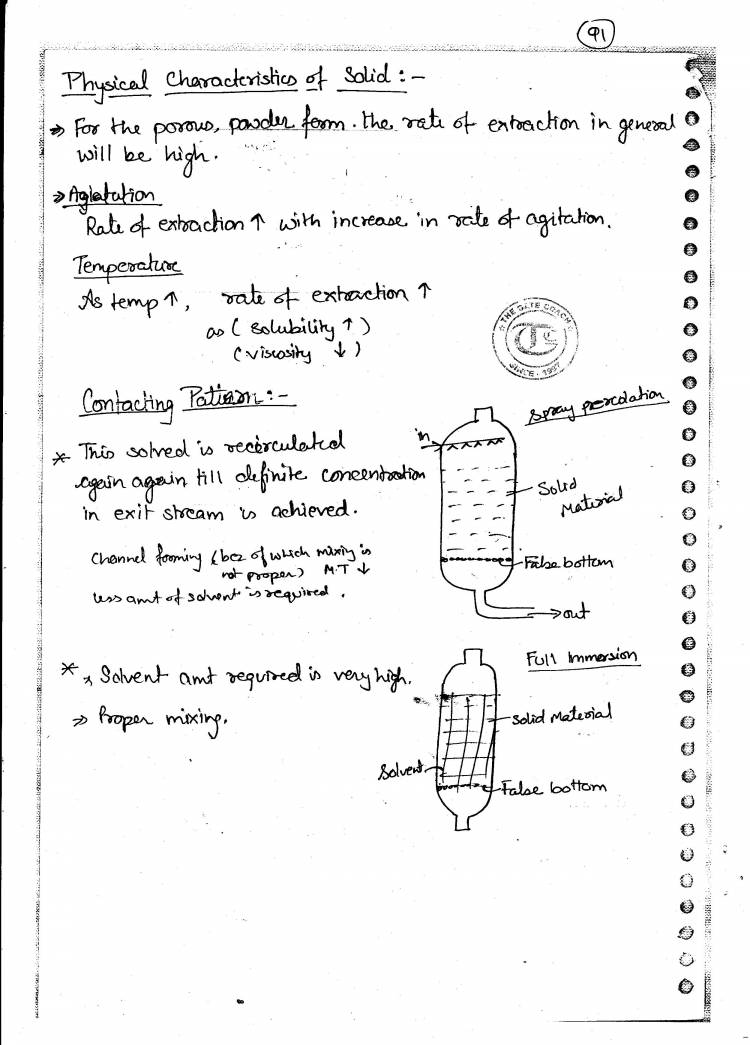 91
Physical Characteristics of Solid :-
⇒ For the porous, powder form. the rate of extraction in general
will be high.
⇒ Agiatution
Rate of extraction ↑ with increase in rate of agitation.
Temperature
As temp ↑, rate of extraction ↑
as ( solubility ↑ )
( viscosity ↓ )
THE GATE COACH
SINCE - 1997
Contacting Pattern :-
Spray percolation
in
* This solved is recirculated
again again till definite concentration
in exit stream is achieved.
Solid
Material
Channel forming (bcz of which mixing is
not proper) M.T ↓
less amt of solvent is required.
False bottom
out
Full Immersion
* Solvent amt required is very high.
⇒ Proper mixing.
Solid Material
Solvent
False bottom